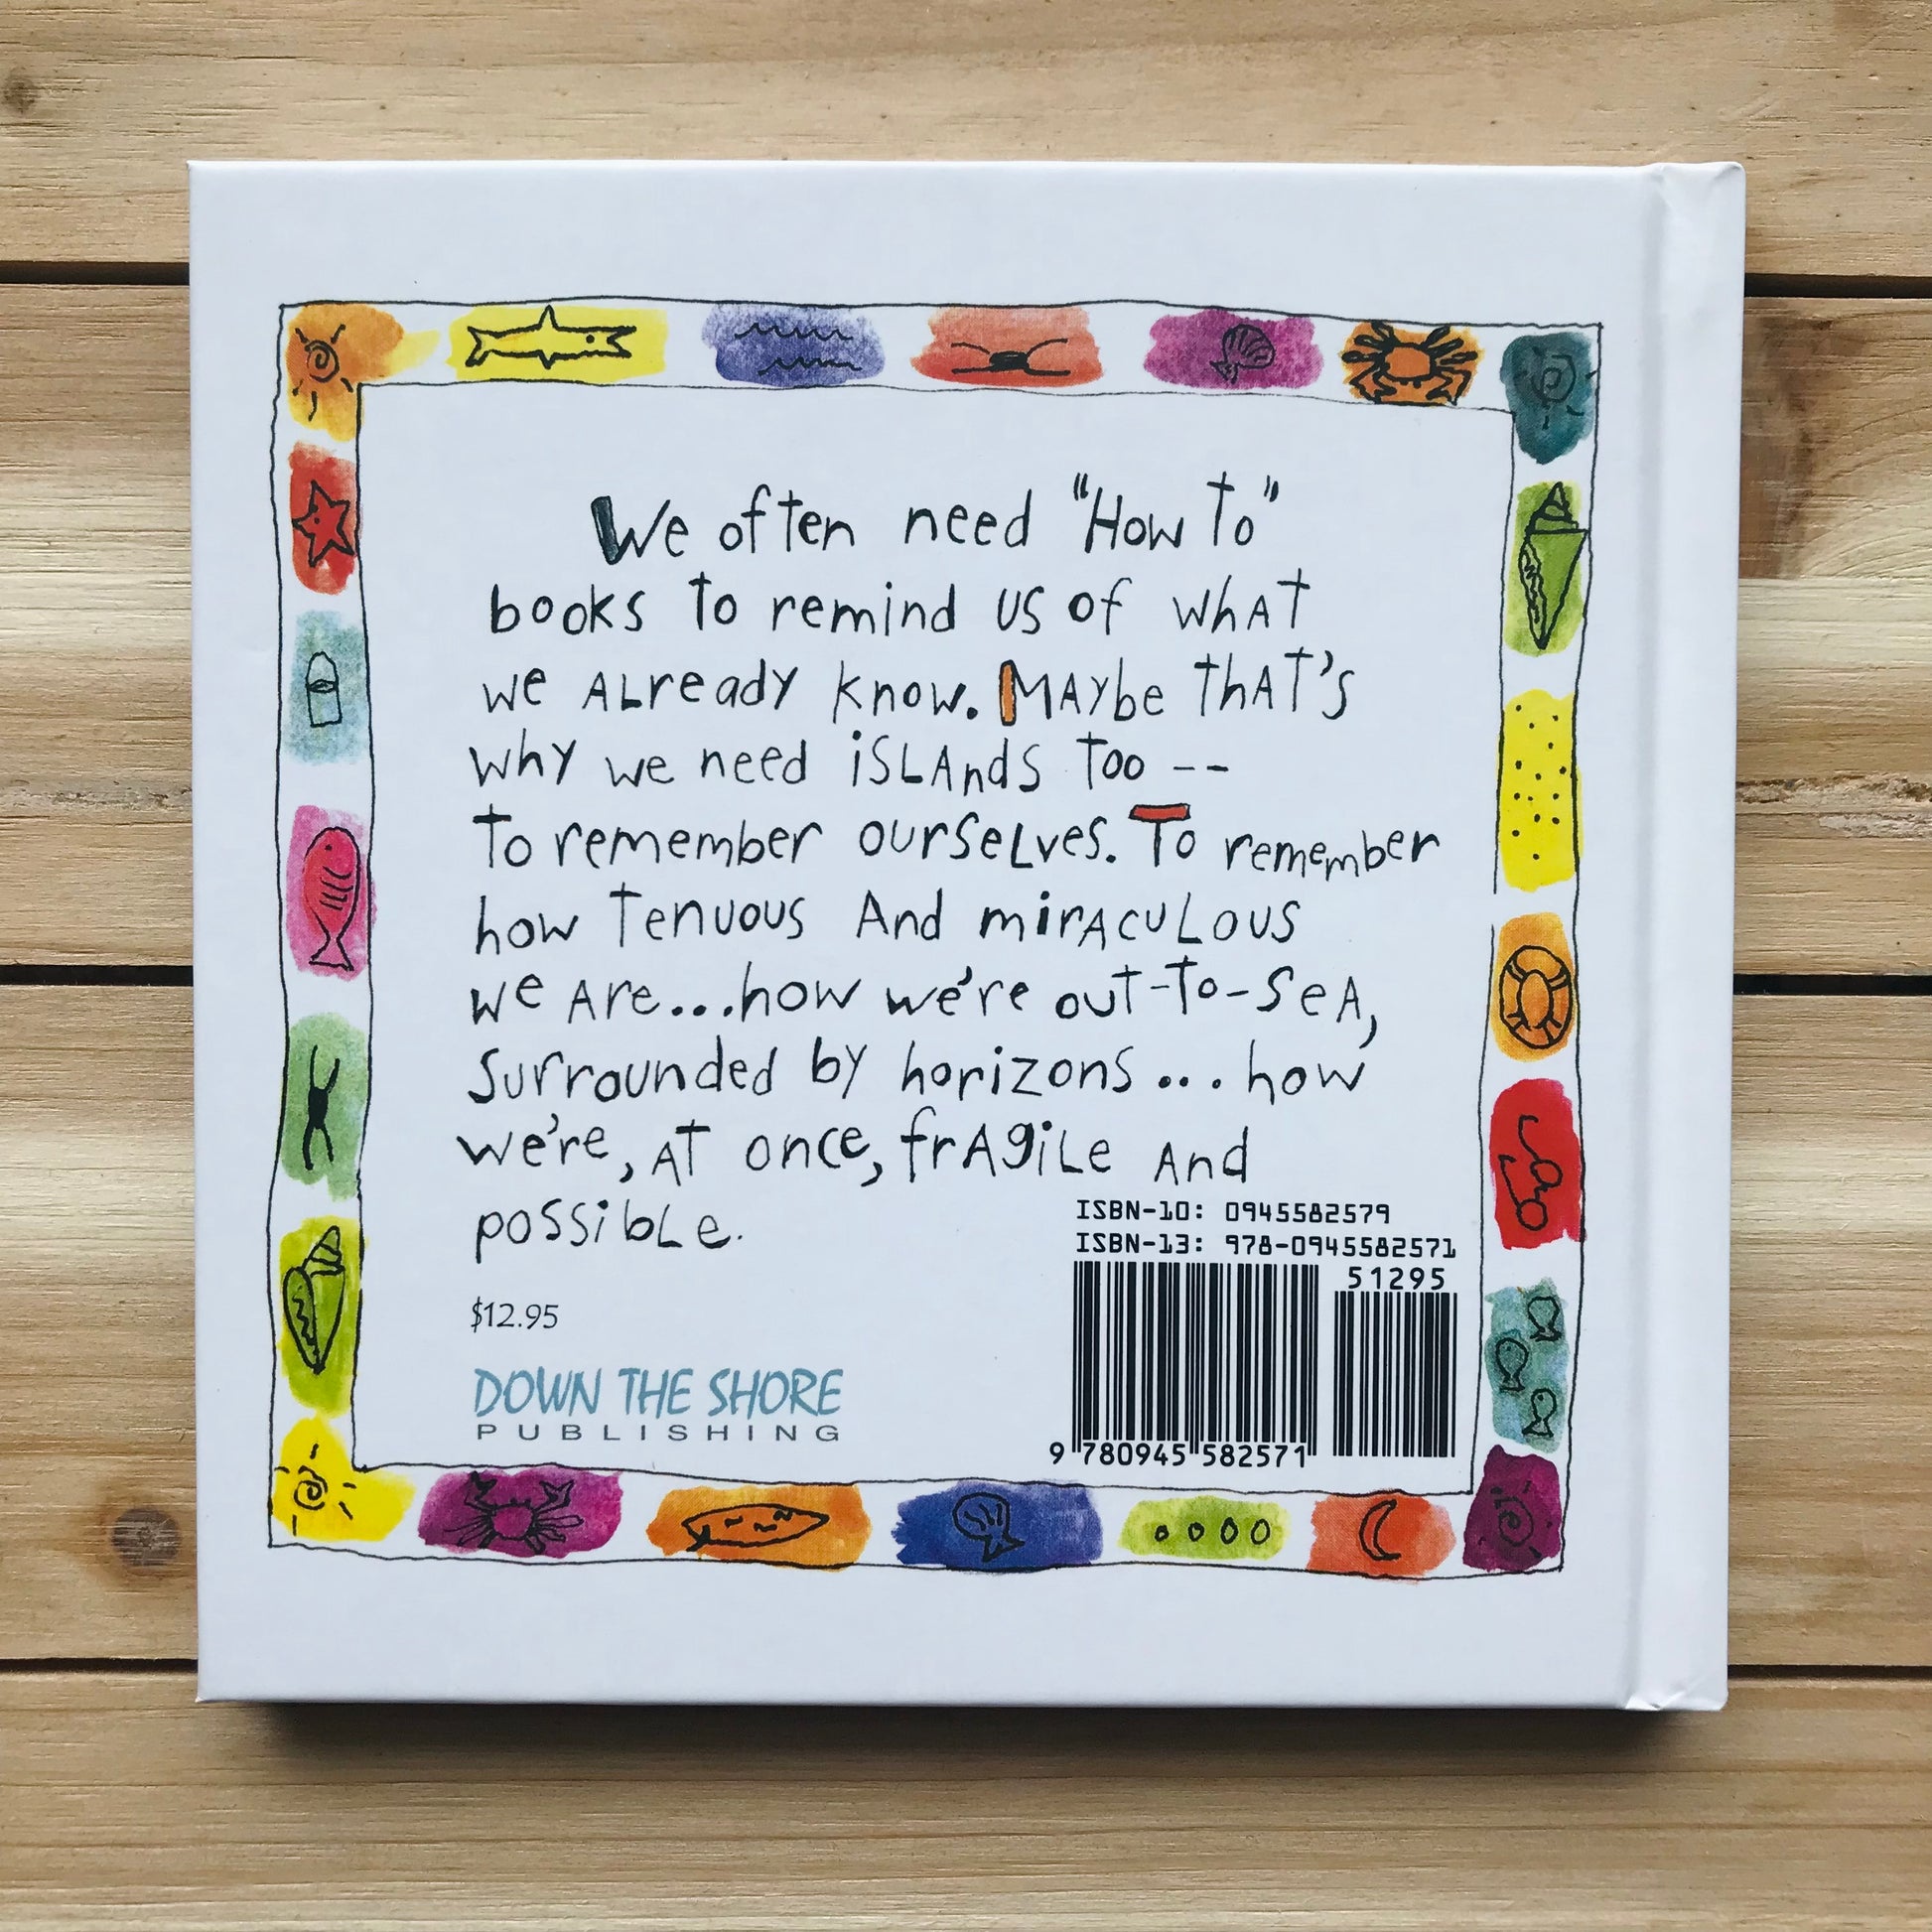 We often need "How To"
books To remind us of whAT
we ALreAdy know. MAybe ThAT's
why we need iSLAndS Too --
To remember ourseLves. To remember
how Tenuous And mirACuLous
we Are...how we're out-To-SeA,
Surrounded by horizons... how
we're, AT once, frAgiLe And
possibLe.
ISBN-10: 0945582579
ISBN-13: 978-0945582571
51295
$12.95
DOWN THE SHORE
PUBLISHING
9 780945 582571